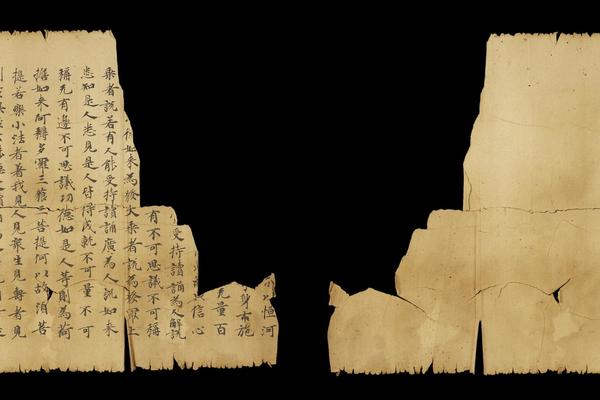 以恒河
身布施
无量百
信心
受持讀誦為人解說
有不可思議不可稱
如來為發大乘者說為發最上
乘者說若有人能受持讀誦廣為人說如來
悉知是人悉見是人皆得成就不可量不可
稱无有邊不可思議功德如是人等則為荷
擔如來阿耨多羅三藐三菩提何以故須菩
提若樂小法者著我見人見眾生見壽者見